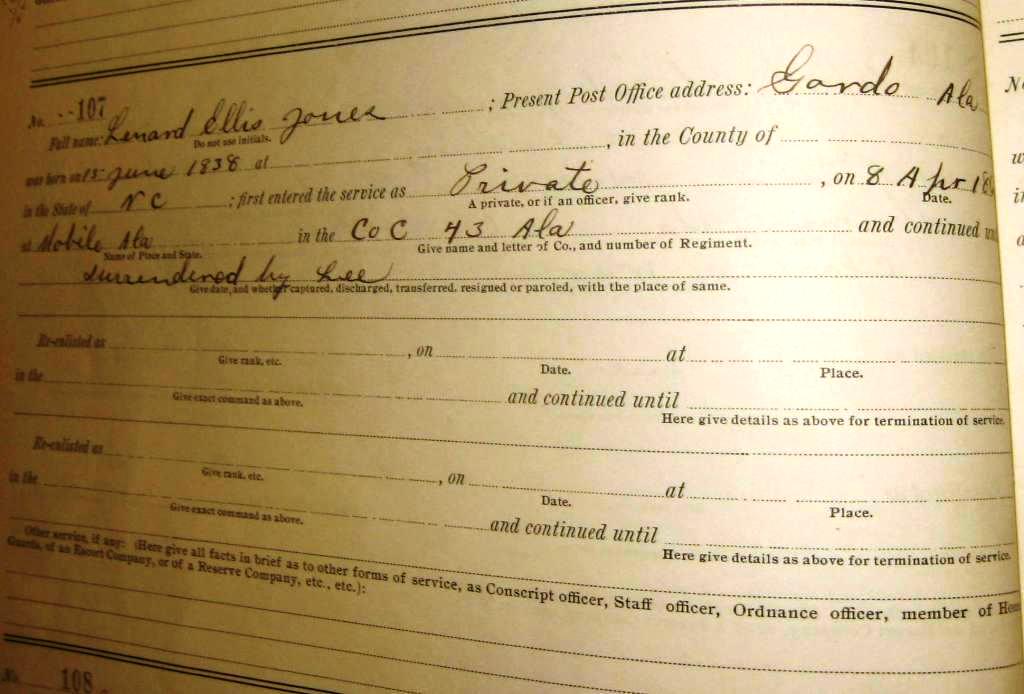 No. 107
Full name: Lenard Ellis Jones ; Present Post Office address: Gordo Ala
Do not use initials.
was born on 15 June 1838 at , in the County of
in the State of N C ; first entered the service as Private , on 8 Apr 18
A private, or if an officer, give rank. Date.
at Mobile Ala in the Co C 43 Ala and continued
Name of Place and State. Give name and letter of Co., and number of Regiment.
surrendered by Lee
Give date, and whether captured, discharged, transferred, resigned or paroled, with the place of same.
Re-enlisted as , on at
Give rank, etc. Date. Place.
in the and continued until
Give exact command as above. Here give details as above for termination of service.
Re-enlisted as , on at
Give rank, etc. Date. Place.
in the and continued until
Give exact command as above. Here give details as above for termination of service.
Other service, if any: (Here give all facts in brief as to other forms of service, as Conscript officer, Staff officer, Ordnance officer, member of
Guards, of an Escort Company, or of a Reserve Company, etc., etc.):
No. 108